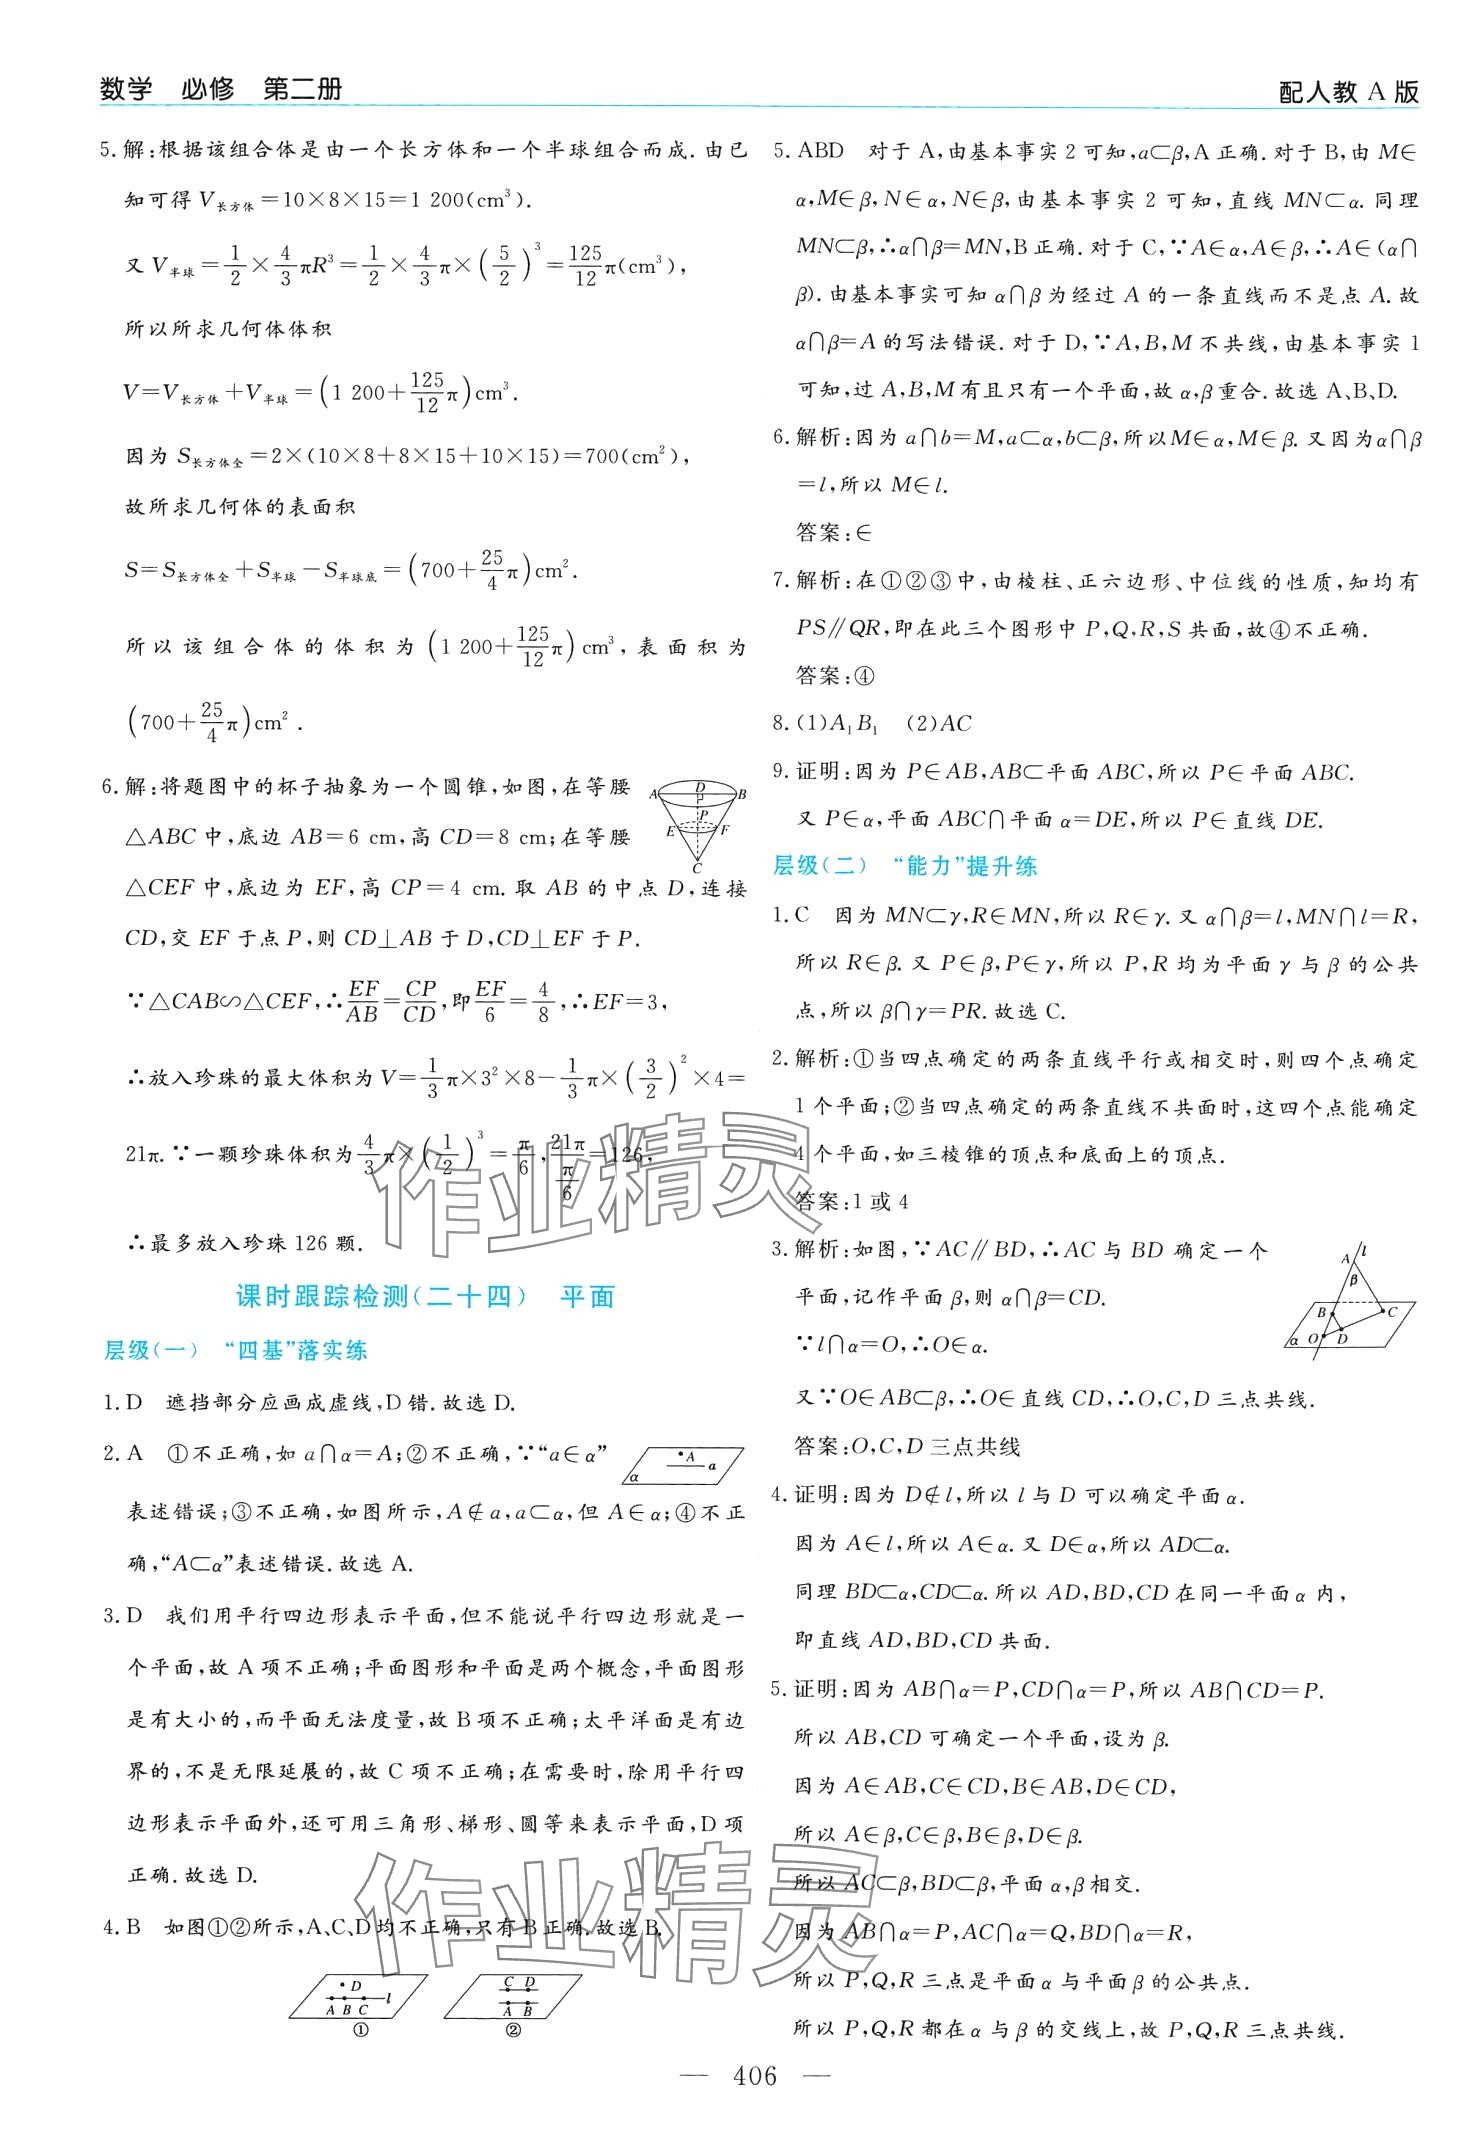 数学 必修 第二册
配人教 A 版
5.解:根据该组合体是由一个长方体和一个半球组合而成.由已
知可得 V长方体=10×8×15=1 200(cm³).
又 V半球=1/2×4/3πR³=1/2×4/3π×(5/2)³=125/12π(cm³),
所以所求几何体体积
V=V长方体+V半球=(1 200+125/12π)cm³.
因为 S长方体全=2×(10×8+8×15+10×15)=700(cm²),
故所求几何体的表面积
S=S长方体全+S半球−S半球底=(700+25/4π)cm².
所以该组合体的体积为(1 200+125/12π)cm³,表面积为
(700+25/4π)cm².
6.解:将题图中的杯子抽象为一个圆锥,如图,在等腰
△ABC 中,底边 AB=6 cm,高 CD=8 cm;在等腰
△CEF 中,底边为 EF,高 CP=4 cm.取 AB 的中点 D,连接
CD,交 EF 于点 P,则 CD⊥AB 于 D,CD⊥EF 于 P.
∵△CAB∽△CEF,∴EF/AB=CP/CD,即EF/6=4/8,∴EF=3,
∴放入珍珠的最大体积为 V=1/3π×3²×8−1/3π×(3/2)²×4=
21π.∵一颗珍珠体积为4/3π×(1/2)³=π/6,21π/(π/6)=126,
∴最多放入珍珠 126 颗.
A D B
P
E F
C
课时跟踪检测(二十四) 平面
层级(一) “四基”落实练
1.D 遮挡部分应画成虚线,D 错.故选 D.
2.A ①不正确,如 a∩α=A;②不正确,∵“a∈α”
表述错误;③不正确,如图所示,A∉a,a⊂α,但 A∈α;④不正
确,“A⊂α”表述错误.故选 A.
A
a
α
3.D 我们用平行四边形表示平面,但不能说平行四边形就是一
个平面,故 A 项不正确;平面图形和平面是两个概念,平面图形
是有大小的,而平面无法度量,故 B 项不正确;太平洋面是有边
界的,不是无限延展的,故 C 项不正确;在需要时,除用平行四
边形表示平面外,还可用三角形、梯形、圆等来表示平面,D 项
正确.故选 D.
4.B 如图①②所示,A、C、D均不正确,只有 B 正确.故选 B.
D
l
A B C
①
C D
A B
②
5.ABD 对于 A,由基本事实 2 可知,a⊂β,A 正确.对于 B,由 M∈
α,M∈β,N∈α,N∈β,由基本事实 2 可知,直线 MN⊂α.同理
MN⊂β,∴α∩β=MN,B 正确.对于 C,∵A∈α,A∈β,∴A∈(α∩
β).由基本事实可知 α∩β 为经过 A 的一条直线而不是点 A.故
α∩β=A 的写法错误.对于 D,∵A,B,M 不共线,由基本事实 1
可知,过 A,B,M 有且只有一个平面,故 α,β 重合.故选 A、B、D.
6.解析:因为 a∩b=M,a⊂α,b⊂β,所以M∈α,M∈β.又因为α∩β
=l,所以 M∈l.
答案:∈
7.解析:在①②③中,由棱柱、正六边形、中位线的性质,知均有
PS∥QR,即在此三个图形中 P,Q,R,S 共面,故④不正确.
答案:④
8.(1)A₁B₁ (2)AC
9.证明:因为 P∈AB,AB⊂平面 ABC,所以 P∈平面 ABC.
又 P∈α,平面 ABC∩平面 α=DE,所以 P∈直线 DE.
层级(二) “能力”提升练
1.C 因为 MN⊂γ,R∈MN,所以 R∈γ.又 α∩β=l,MN∩l=R,
所以 R∈β.又 P∈β,P∈γ,所以 P,R 均为平面 γ 与 β 的公共
点,所以 β∩γ=PR.故选 C.
2.解析:①当四点确定的两条直线平行或相交时,则四个点确定
1 个平面;②当四点确定的两条直线不共面时,这四个点能确定
4 个平面,如三棱锥的顶点和底面上的顶点.
答案:1 或 4
3.解析:如图,∵AC∥BD,∴AC 与 BD 确定一个
平面,记作平面 β,则 α∩β=CD.
∵l∩α=O,∴O∈α.
又∵O∈AB⊂β,∴O∈直线 CD,∴O,C,D 三点共线.
答案:O,C,D 三点共线
l
A
β
B C
α O D
4.证明:因为 D∉l,所以 l 与 D 可以确定平面 α.
因为 A∈l,所以 A∈α.又 D∈α,所以 AD⊂α.
同理 BD⊂α,CD⊂α.所以 AD,BD,CD 在同一平面 α 内,
即直线 AD,BD,CD 共面.
5.证明:因为 AB∩α=P,CD∩α=P,所以 AB∩CD=P.
所以 AB,CD 可确定一个平面,设为 β.
因为 A∈AB,C∈CD,B∈AB,D∈CD,
所以 A∈β,C∈β,B∈β,D∈β.
所以 AC⊂β,BD⊂β,平面 α,β 相交.
因为 AB∩α=P,AC∩α=Q,BD∩α=R,
所以 P,Q,R 三点是平面 α 与平面 β 的公共点.
所以 P,Q,R 都在 α 与 β 的交线上,故 P,Q,R 三点共线.
作业精灵
作业精灵
— 406 —